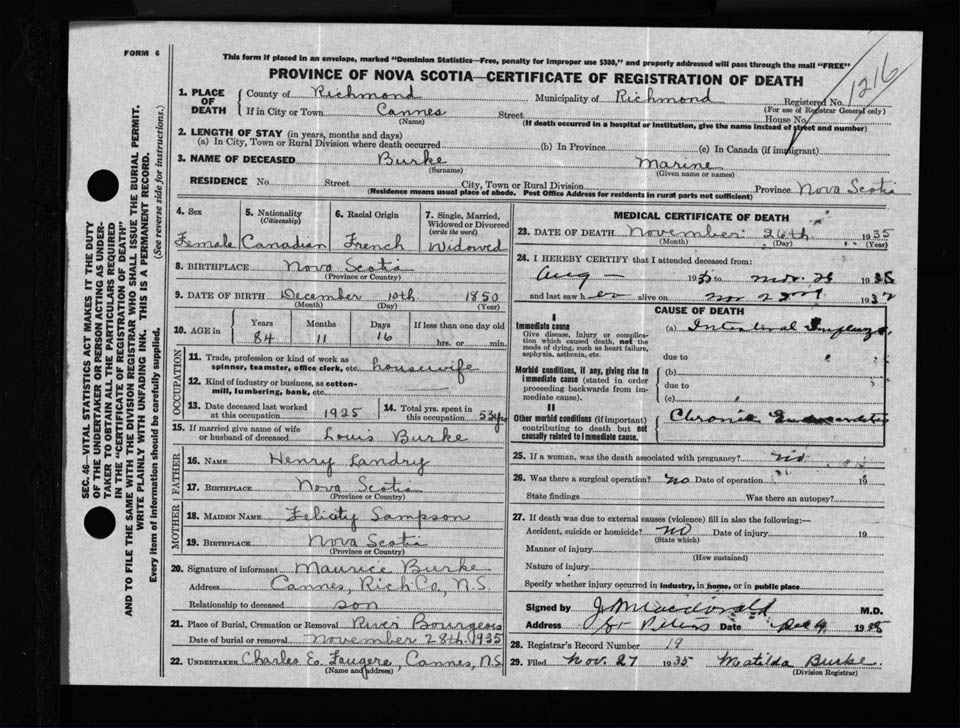 FORM 6
This form if placed in an envelope, marked "Dominion Statistics—Free, penalty for improper use $300," and properly addressed will pass through the mail "FREE"
PROVINCE OF NOVA SCOTIA—CERTIFICATE OF REGISTRATION OF DEATH
1216
1. PLACE OF DEATH County of Richmond Municipality of Richmond Registered No.
(For use of Registrar General only)
If in City or Town Cannes Street House No.
(Name) (If death occurred in a hospital or institution, give the name instead of street and number)
2. LENGTH OF STAY (in years, months and days)
(a) In City, Town or Rural Division where death occurred (b) In Province (c) In Canada (if immigrant)
3. NAME OF DECEASED Burke Marine
(Surname) (Given name or names)
RESIDENCE No. Street City, Town or Rural Division Province Nova Scotia
(Residence means usual place of abode. Post Office Address for residents in rural parts not sufficient)
4. Sex 5. Nationality (Citizenship) 6. Racial Origin 7. Single, Married, Widowed or Divorced (write the word)
Female Canadian French Widowed
8. BIRTHPLACE Nova Scotia
(Province or Country)
9. DATE OF BIRTH December 10th. 1850
(Month) (Day) (Year)
10. AGE in Years Months Days If less than one day old
84 11 16 hrs. or min.
OCCUPATION
11. Trade, profession or kind of work as
spinner, teamster, office clerk, etc. housewife
12. Kind of industry or business, as cotton-
mill, lumbering, bank, etc.
13. Date deceased last worked
at this occupation 1925
14. Total yrs. spent in
this occupation 53yr
15. If married give name of wife
or husband of deceased Louis Burke
FATHER
16. NAME Henry Landry
17. BIRTHPLACE Nova Scotia
(Province or Country)
MOTHER
18. MAIDEN NAME Felicity Sampson
19. BIRTHPLACE Nova Scotia
(Province or Country)
20. Signature of informant Maurice Burke
Address Cannes, Rich Co, N.S.
Relationship to deceased son
21. Place of Burial, Cremation or Removal River Bourgeois
Date of burial or removal November 28th. 1935
22. UNDERTAKER Charles E. Fougere, Cannes, N.S.
(Name and address)
MEDICAL CERTIFICATE OF DEATH
23. DATE OF DEATH November 26th 1935
(Month) (Day) (Year)
24. I HEREBY CERTIFY that I attended deceased from:
Aug — 1935 to Nov. 1935
and last saw her alive on Nov 193
CAUSE OF DEATH
I
Immediate cause
Give disease, injury or complica-
tion which caused death, not the
mode of dying, such as heart failure,
asphyxia, asthenia, etc.
(a) Intestinal
due to
Morbid conditions, if any, giving rise to
immediate cause (stated in order
proceeding backwards from im-
mediate cause).
(b)
due to
(c)
II
Other morbid conditions (if important)
contributing to death but not
causally related to immediate cause.
Chronic
25. If a woman, was the death associated with pregnancy? no
26. Was there a surgical operation? no Date of operation 19
State findings Was there an autopsy?
27. If death was due to external causes (violence) fill in also the following:—
Accident, suicide or homicide? no Date of injury 19
(State which)
Manner of injury
(How sustained)
Nature of injury
Specify whether injury occurred in industry, in home, or in public place
Signed by J Macdonald M.D.
Address St Peters Date Dec 9 1935
28. Registrar's Record Number 19
29. Filed Nov. 27 1935 Matilda Burke.
(Division Registrar)
SEC. 46—VITAL STATISTICS ACT MAKES IT THE DUTY
OF THE UNDERTAKER OR PERSON ACTING AS UNDER-
TAKER TO OBTAIN ALL THE PARTICULARS REQUIRED
IN THE "CERTIFICATE OF REGISTRATION OF DEATH"
AND TO FILE THE SAME WITH THE DIVISION REGISTRAR WHO SHALL ISSUE THE BURIAL PERMIT.
WRITE PLAINLY WITH UNFADING INK. THIS IS A PERMANENT RECORD.
Every item of information should be carefully supplied. (See reverse side for instructions.)